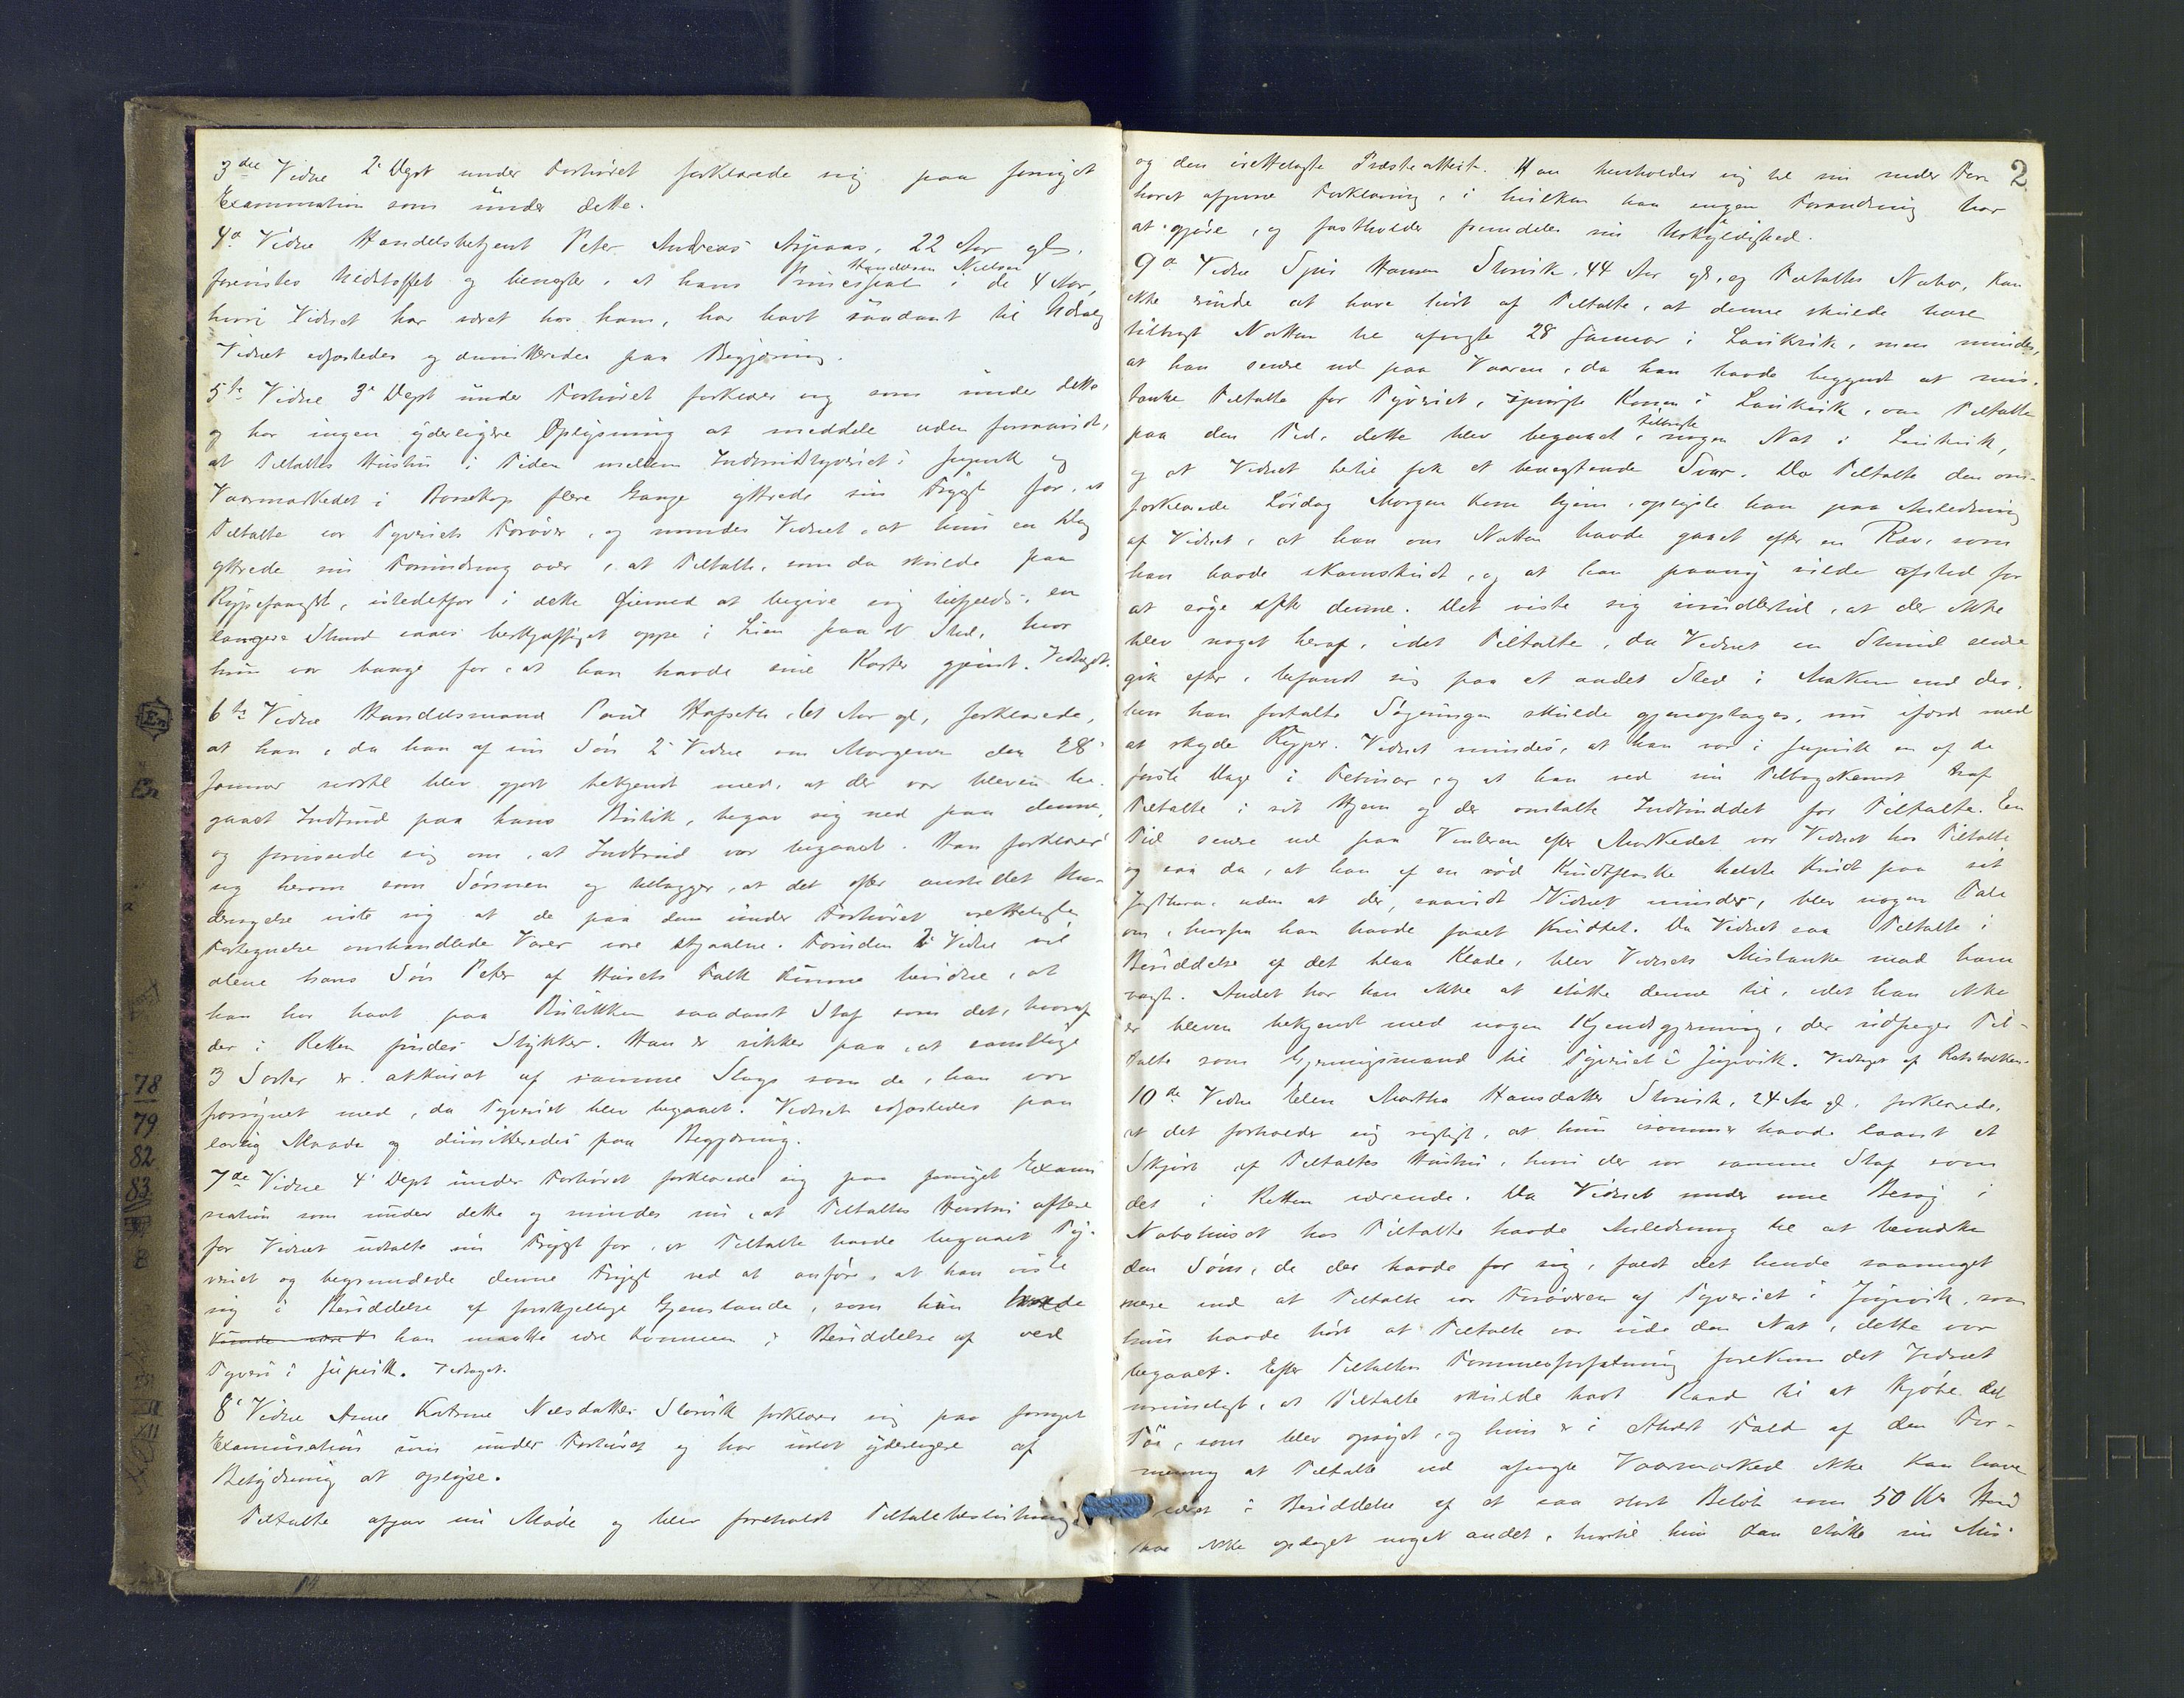 3die Vidne 2' Dept under Forhøret forklarede sig paa fornyet
Examination som under dette.
4de Vidne Handelsbetjent Peter Andreas 22 Aar gl.
forevistes Uldstoffet og benægter, at hans Principal Handelsm Nielsen i de 4 Aar,
hvori Vidnet har været hos ham, har havt saadant til Udsalg
Vidnet edfæstedes og dimitteredes paa Begjæring.
5te Vidne 3' Dept under Forhøret forklarer sig som under dette
og har ingen yderligere Oplysning at meddele uden forsaavidt,
at Tiltaltes Hustru i Tiden mellem Indbrudstyveriet i Jupvik og
Vaarmarkedet i Bossekop flere Gange yttrede sin Frygt for, at
Tiltalte var Tyveriets Forøver, og mindes Vidnet, at hun en Dag
yttrede sin Forundring over, at Tiltalte, som da skulde paa
Rypefangst, istedetfor i dette Øiemed at begive sig tilfjelds, en
længere Stund saaes beskjæftiget oppe i Lien paa et Sted, hvor
hun var bange for, at han havde sine Koster gjemt. Vedtaget.
6te Vidne Handelsmand Poul Hafseth, 61 Aar gl, forklarede,
at han, da han af sin Søn 2' Vidne om Morgenen den 28'
Januar sidstl blev gjort bekjendt med, at der var bleven be-
gaaet Indbrud paa hans Butik, begav sig ned paa denne,
og forvissede sig om, at Indbrud var begaaet. Han forklarer
sig herom som Sønnen og tillægger, at det efter anstillet Un-
dersøgelse viste sig at de paa den under Forhøret fremlagte
Fortegnelse omhandlede Varer vare stjaalne. Foruden 2' Vidne vil
alene hans Søn Peter af Husets Folk kunne bevidne, at
han har havt paa Butikken saadant Stof som det, hvoraf
der i Retten findes Stykker. Han er sikker paa, at samtlige
3 Sorter er akkurat af samme Slags som de, han var
forsynet med, da Tyveriet blev begaaet. Vidnet edfæstedes paa
lovlig Maade og dimitteredes paa Begjæring.
7de Vidne 4' Dept under Forhøret forklarede sig paa fornyet Exami
nation som under dette og mindes nu, at Tiltaltes Hustru oftere
for Vidnet udtalte sin Frygt for, at Tiltalte havde begaaet Ty-
veriet og begrundede denne Frygt ved at anføre, at han viste
sig i Besiddelse af forskjellige Gjenstande, som hun havde
kunde være han maatte være kommen i Besiddelse af ved
Tyveri i Jupvik. Vedtaget.
8' Vidne Anne Katrine Nilsdatter Storvik forklarer sig paa fornyet
Examination som under Forhøret og har intet yderligere af
Betydning at oplyse.
Tiltalte afgav nu Møde og blev foreholdt Tiltalebeslutning
2
og den irettelagte Præsteattest. Han henholder sig til sin under For
høret afgivne Forklaring, i hvilken han ingen Forandring har
at gjøre, og fastholder fremdeles sin Uskyldighed.
9de Vidne Hansen Storvik, 44 Aar gl, og Tiltaltes Nabo, kan
ikke erindre at have hørt af Tiltalte, at denne skulde have
tilbragt Natten til afvigte 28 Januar i Laukvik, men mindes,
at han senere ud paa Vaaren, da han havde begyndt at mis-
tænke Tiltalte for Tyveriet, spurgte Konen i Laukvik, om Tiltalte
paa den Tid, dette blev begaaet, tilbragte nogen Nat i Laukvik,
og at Vidnet hertil fik et benægtende Svar. Da Tiltalte den om-
forklarede Lørdag Morgen kom hjem, oplyste han paa Anledning
af Vidnet, at han om Natten havde gaaet efter en Ræv, som
han havde skamskudt, og at han paany vilde afsted for
at søge efter denne. Det viste sig imidlertid, at der ikke
blev noget heraf, idet Tiltalte, da Vidnet en Stund senere
gik efter, befandt sig paa et andet Sted i Marken end der,
hvor han fortalte Søgningen skulde gjenoptages, nu ifærd med
at skyde Ryper. Vidnet mindes, at han var i Jupvik en af de
første Dage i Februar, og at han ved sin Tilbagekomst traf
Tiltalte i sit Hjem og der omtalte Indbruddet for Tiltalte. En
Tid senere ud paa Vinteren efter Markedet var Vidnet hos Tiltalte
og saa da, at han af en rød Krudtflaske heldte Krudt paa sit
Jagthorn, uden at der, saavidt Vidnet mindes, blev nogen Tale
om, hvorfra han havde faaet Krudtet. Da Vidnet saa Tiltalte i
Besiddelse af det blaa Klæde, blev Vidnets Mistanke mod ham
vagt. Andet har han ikke at støtte denne til, idet han ikke
er bleven bekjendt med nogen Kjendsgjerning, der udpeger Til-
talte som Gjerningsmand til Tyveriet i Jupvik. Vedtaget af
10de Vidne Elen Martha Hansdatter Storvik, 24 Aar gl, forklarede,
at det forholder sig rigtigt, at hun isommer havde laant et
Skjørt af Tiltaltes Hustru, hvori der var samme Stof som
det i Retten værende. Da Vidnet under sine Besøg i
Nabohuset hos Tiltalte havde Anledning til at bemærke
den de der havde for sig, faldt det hende saameget
mere ind at Tiltalte var Forøveren af Tyveriet i Jupvik, som
hun havde hørt at Tiltalte var ude den Nat, dette var
begaaet. Efter Tiltaltes Formuesforfatning forekom det Vidnet
urimeligt, at Tiltalte skulde havt Raad til at kjøbe det
Tøi, som blev opsyet, og hun er i Andet Fald af den For-
mening at Tiltalte ved afvigte Vaarmarked ikke kan have
været i Besiddelse af et saa stort Beløb som 50 Kr. Hun
har ikke opdaget noget andet, hvortil hun kan støtte sin Mis-